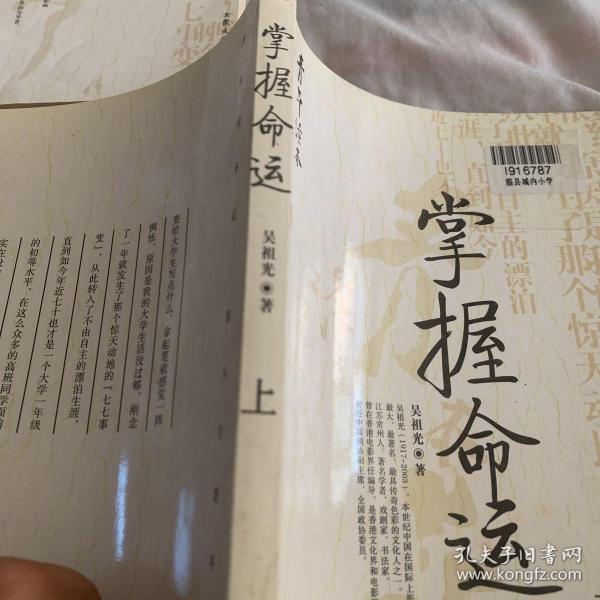 掌握命运
吴祖光◉著
上
1916787
临县城内小学
掌握命运
吴祖光◉著
吴祖光(1917-2003),本世纪中国在国际上影
最大、最著名、最具传奇色彩的文化人之一。
江苏常州人。著名学者、戏剧家、书法家。
曾在香港电影界任编导,是香港文化界和电影
曾任中国剧协副主席,全国政协委员。
要给大学生写点什么,拿起笔就感觉一阵
惆怅,原因是我的大学生活没过够,刚念
了一年就发生了那个惊天动地的“七七事
变”,从此转入了不由自主的漂泊生涯,
直到如今年近七十也才是一个大学一年级
的初等水平,在这么众多的高班同学面前
实在
孔夫子旧书网
www.kongfz.com